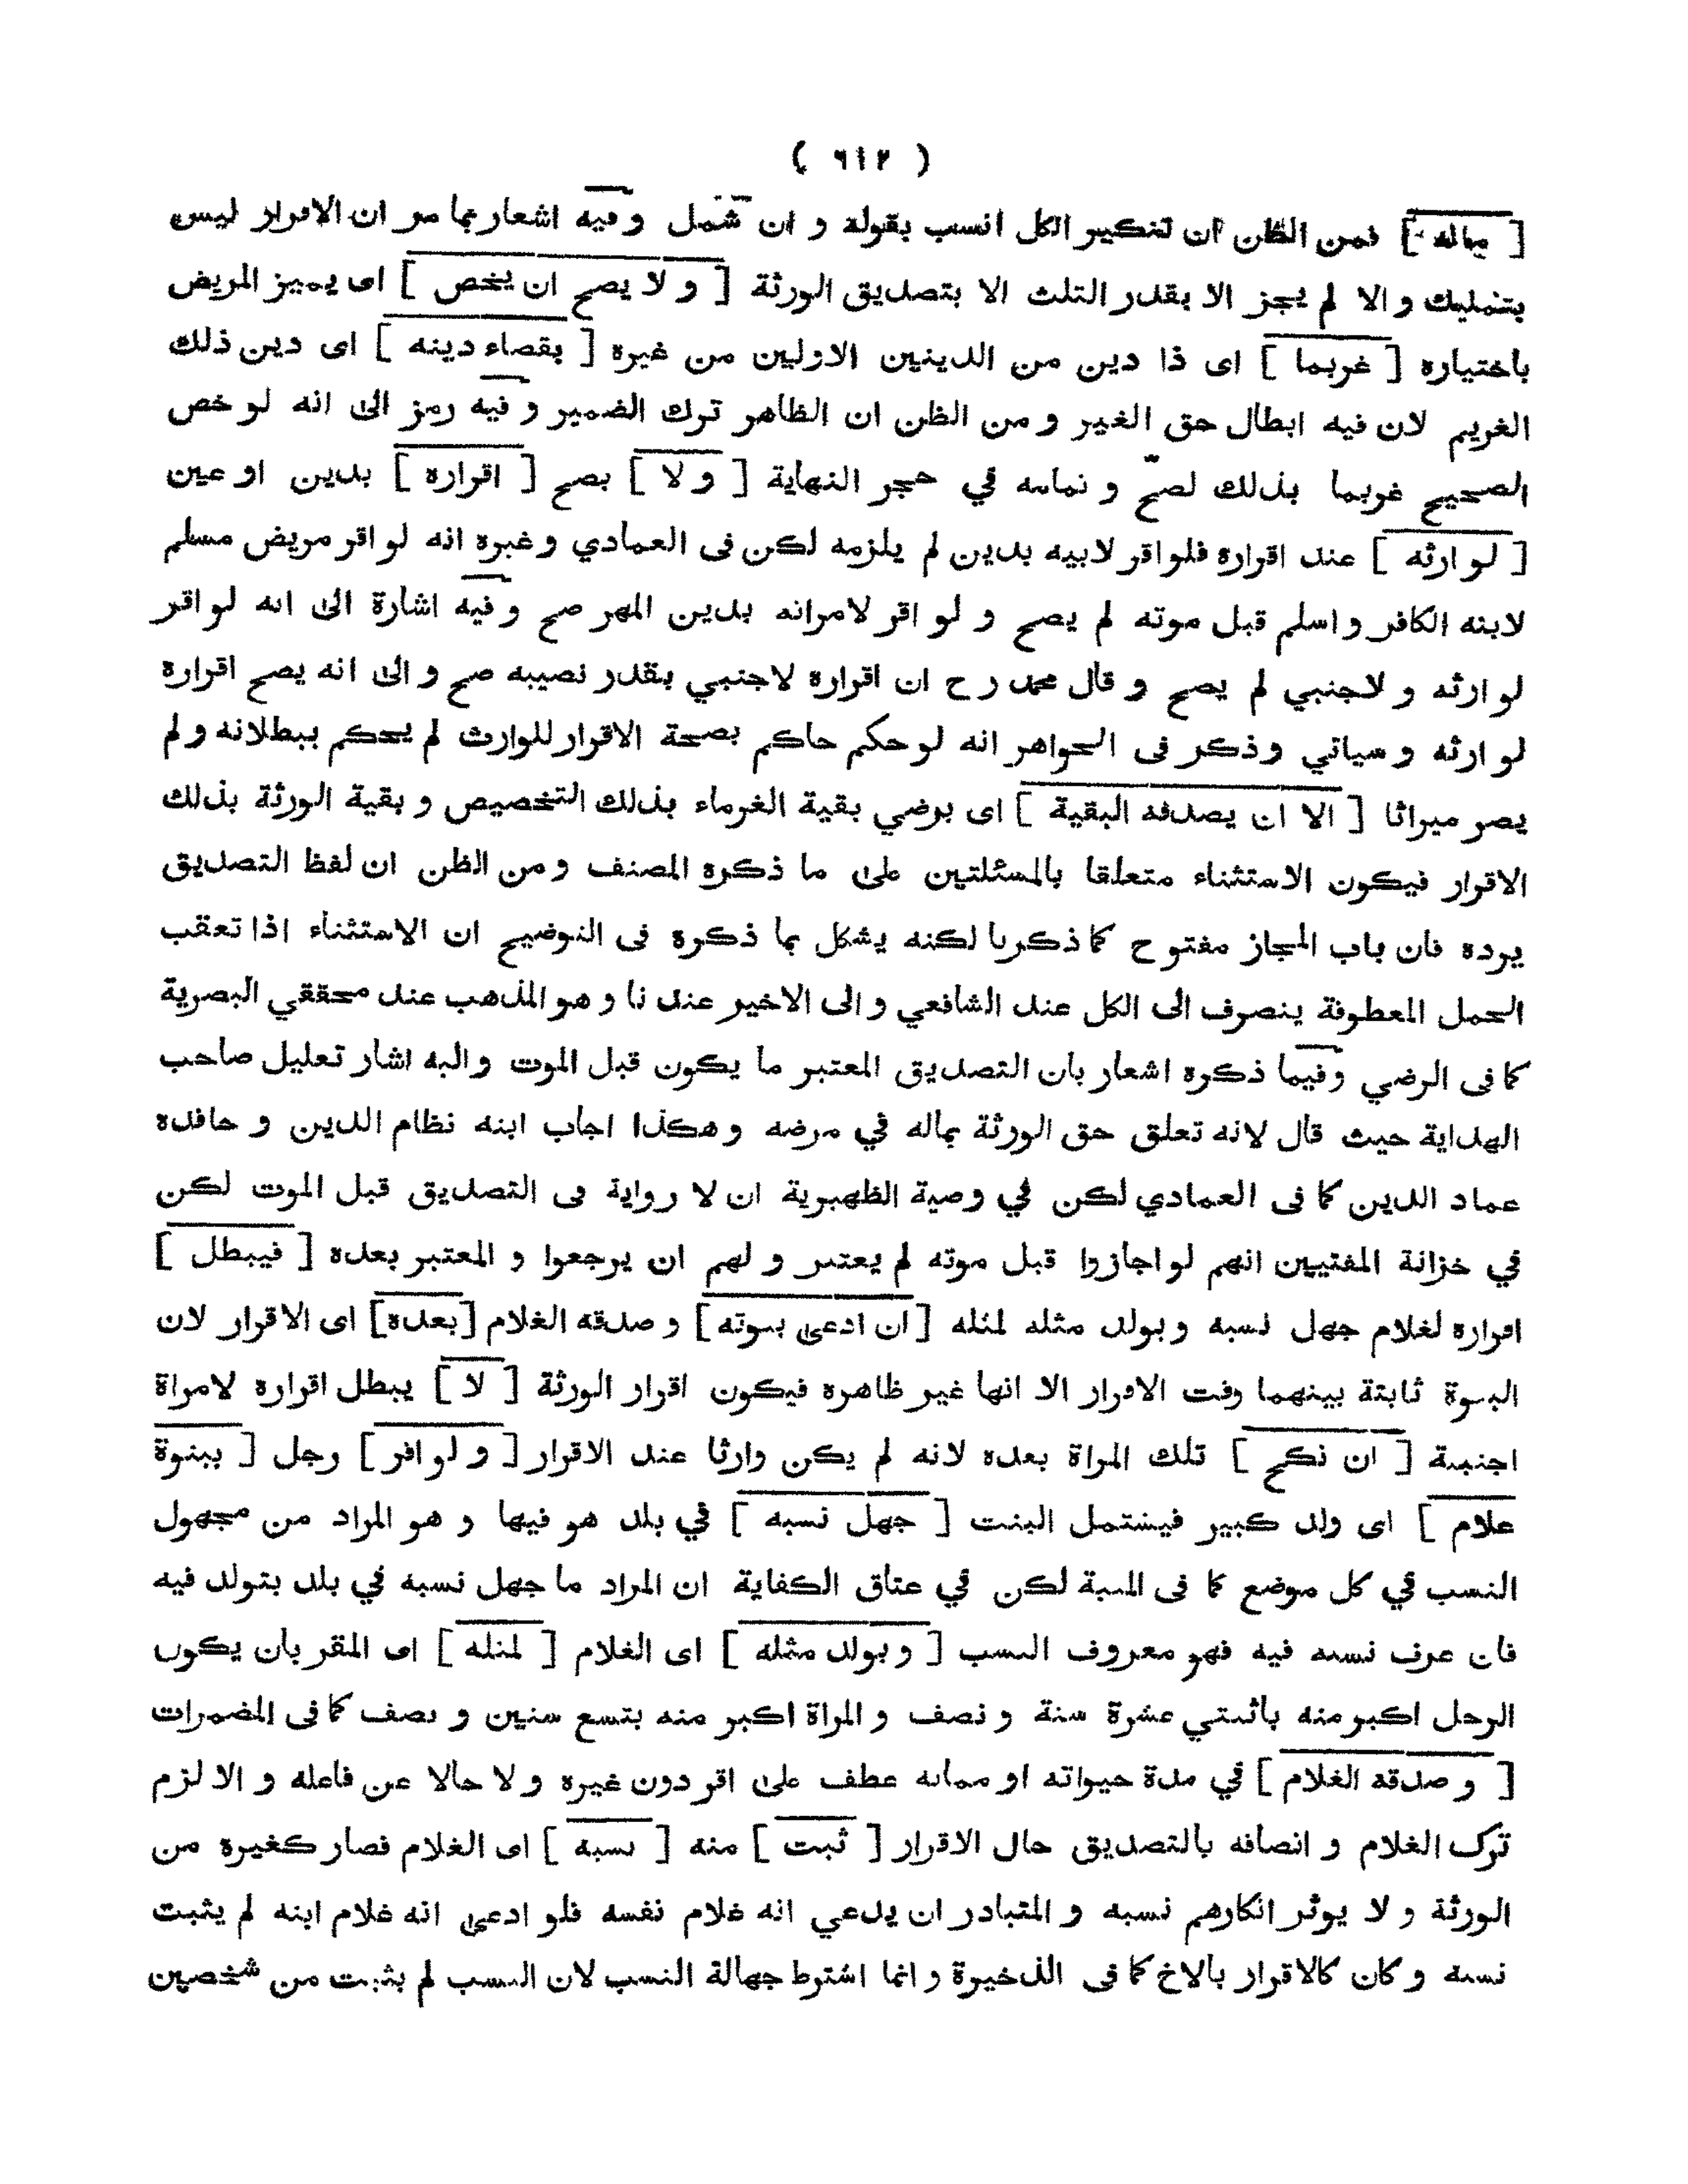 ( ٦١٢ )
[ بماله ] فمن الظن ان تنكير الكل انسب بقوله و ان شمل وفيه اشعار بما مر ان الاقرار ليس
بتمليك و الا لم يجز الا بقدر الثلث الا بتصديق الورثة [ و لا يصح ان يخص ] اى يميز المريض
باختياره [ غريما ] اى ذا دين من الدينين الاولين من غيره [ بقضاء دينه ] اى دين ذلك
الغريم لان فيه ابطال حق الغير و من الظن ان الظاهر ترك الضمير و فيه رمز الى انه لو خص
الصحيح غريما بذلك لصح و تمامه في حجر النهاية [ و لا ] يصح [ اقراره ] بدين او عين
[ لوارثه ] عند اقراره فلو اقر لابنه بدين لم يلزمه لكن فى العمادي و غيره انه لو اقر مريض مسلم
لابنه الكافر و اسلم قبل موته لم يصح و لو اقر لامراته بدين المهر صح و فيه اشارة الى انه لو اقر
لوارثه و لاجنبي لم يصح و قال محمد رح ان اقراره لاجنبي بقدر نصيبه صح و الى انه يصح اقراره
لوارثه و سياتي و ذكر فى الجواهر انه لو حكم حاكم بصحة الاقرار للوارث لم يحكم ببطلانه و لم
يصر ميراثا [ الا ان يصدقه البقية ] اى يرضي بقية الغرماء بذلك التخصيص و بقية الورثة بذلك
الاقرار فيكون الاستثناء متعلقا بالمسئلتين على ما ذكره المصنف و من الظن ان لفظ التصديق
يرده فان باب المجاز مفتوح كما ذكرنا لكنه يشكل بما ذكره فى التوضيح ان الاستثناء اذا تعقب
الجمل المعطوفة ينصرف الى الكل عند الشافعي و الى الاخير عند نا و هو المذهب عند محققي البصرية
كما فى الرضي وفيما ذكره اشعار بان التصديق المعتبر ما يكون قبل الموت و اليه اشار تعليل صاحب
الهداية حيث قال لانه تعلق حق الورثة بماله في مرضه و هكذا اجاب ابنه نظام الدين و حافده
عماد الدين كما فى العمادي لكن في وصية الظهيرية ان لا رواية فى التصديق قبل الموت لكن
في خزانة المفتيين انهم لو اجازوا قبل موته لم يعتبر و لهم ان يرجعوا و المعتبر بعده [ فيبطل ]
اقراره لغلام جهل نسبه و يولد مثله لمثله [ ان ادعى بنوته ] و صدقه الغلام [ بعده ] اى الاقرار لان
البنوة ثابتة بينهما وقت الاقرار الا انها غير ظاهره فيكون اقرار الورثة [ لا ] يبطل اقراره لامراة
اجنبية [ ان نكح ] تلك المراة بعده لانه لم يكن وارثا عند الاقرار [ و لو اقر ] رجل [ ببنوة
غلام ] اى ولد كبير فيشتمل البنت [ جهل نسبه ] في بلد هو فيها و هو المراد من مجهول
النسب في كل موضع كما فى المنية لكن في عتاق الكفاية ان المراد ما جهل نسبه في بلد يتولد فيه
فان عرف نسبه فيه فهو معروف النسب [ و يولد مثله ] اى الغلام [ لمثله ] اى المقر بان يكون
الرجل اكبر منه باثنتي عشرة سنة و نصف و المراة اكبر منه بتسع سنين و نصف كما فى المضمرات
[ و صدقه الغلام ] في مدة حيوته او مماته عطف على اقر دون غيره و لا حالا عن فاعله و الا لزم
ترك الغلام و اتصافه بالتصديق حال الاقرار [ ثبت ] منه [ نسبه ] اى الغلام فصار كغيره من
الورثة و لا يوثر انكارهم نسبه و المتبادر ان يدعي انه غلام نفسه فلو ادعى انه غلام ابنه لم يثبت
نسبه و كان كالاقرار بالاخ كما فى الذخيرة و انما اشترط جهالة النسب لان النسب لم يثبت من شخصين